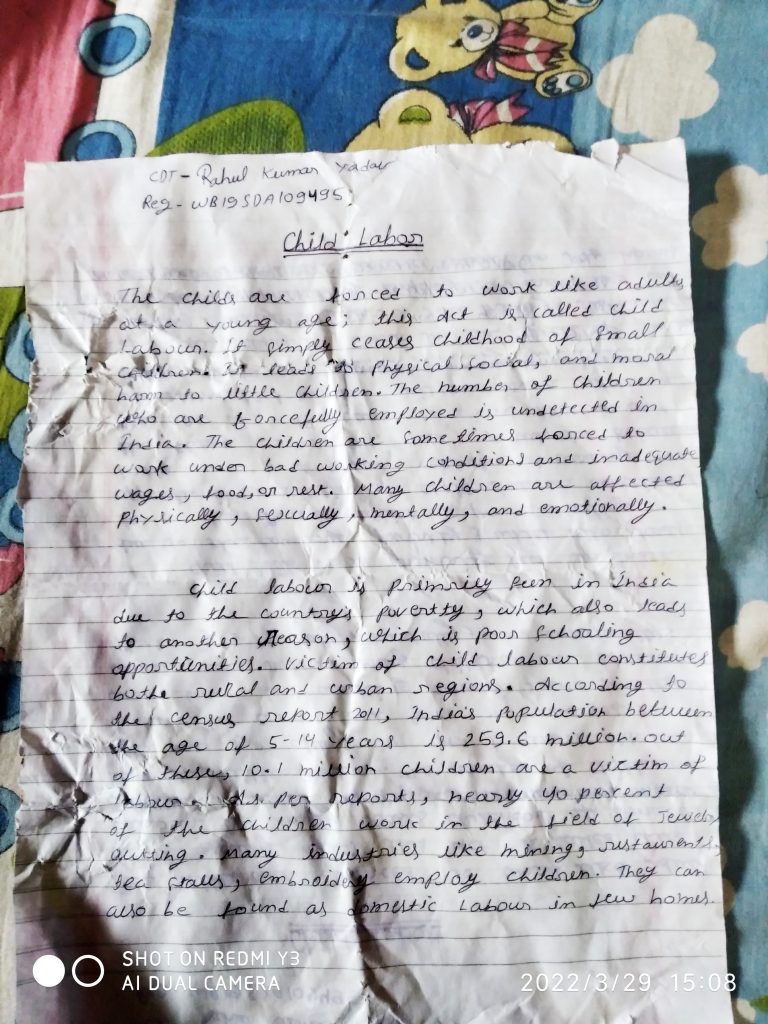 CDT - Rahul Kumar Yadav
Reg - WB19SDA109495,
Child Labor
The childs are forced to work like adults
at a young age; this act is called child
Labour. It simply ceases childhood of small
children. It leads to physical, social, and moral
harm to little children. The number of children
who are forcefully employed is undetected in
India. The children are sometimes forced to
work under bad working conditions and inadequate
wages, food, or rest. Many children are affected
physically, sexually, mentally, and emotionally.
Child labour is primrily seen in India
due to the country's povertty, which also leads
to another reason, which is poor schooling
opportunities. Victim of child labour constitutes
bothe rural and urban regions. According to
the census report 2011, India's population between
the age of 5-14 years is 259.6 million. out
of these, 10.1 million children are a victim of
labour. As per reports, nearly 40 percent
of the children work in the field of Jewelry
cutting. Many industries like mining, restaurents,
tea stalls, embroidery employ children. They can
also be found as domestic Labour in few homes.
SHOT ON REDMI Y3
AI DUAL CAMERA
2022/3/29 15:08